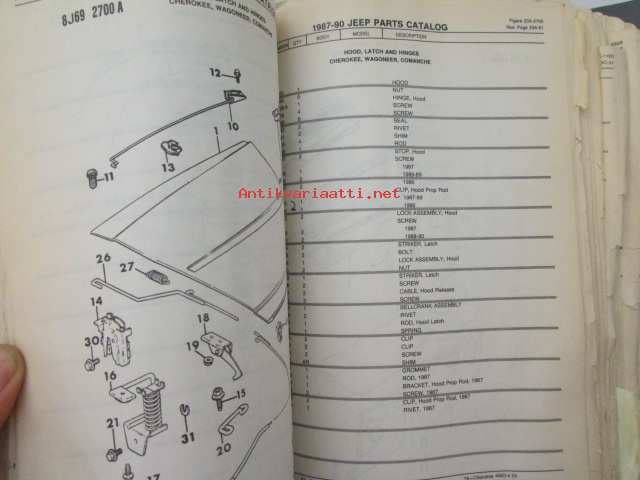 8J69 2700 A
CHEROKEE, WAGONEER, COMANCHE
12
10
1
13
11
26
27
14
18
30
19
16
15
21
31
20
17
Antikvariaatti.net
1987-90 JEEP PARTS CATALOG
QTY BODY MODEL DESCRIPTION
HOOD, LATCH AND HINGES
CHEROKEE, WAGONEER, COMANCHE
HOOD
NUT
HINGE, Hood
SCREW
SCREW
SEAL
RIVET
SHIM
ROD
STOP, Hood
SCREW
1987
1988-89
CLIP, Hood Prop Rod
1987-89
LOCK ASSEMBLY, Hood
SCREW
1987
1988-90
STRIKER, Latch
BOLT
LOCK ASSEMBLY, Hood
NUT
STRIKER, Latch
SCREW
CABLE, Hood Release
SCREW
BELLCRANK ASSEMBLY
RIVET
ROD, Hood Latch
SPRING
CLIP
CLIP
SCREW
SHIM
GROMMET
ROD, 1987
BRACKET, Hood Prop Rod, 1987
SCREW, 1987
CLIP, Hood Prop Rod, 1987
RIVET, 1987